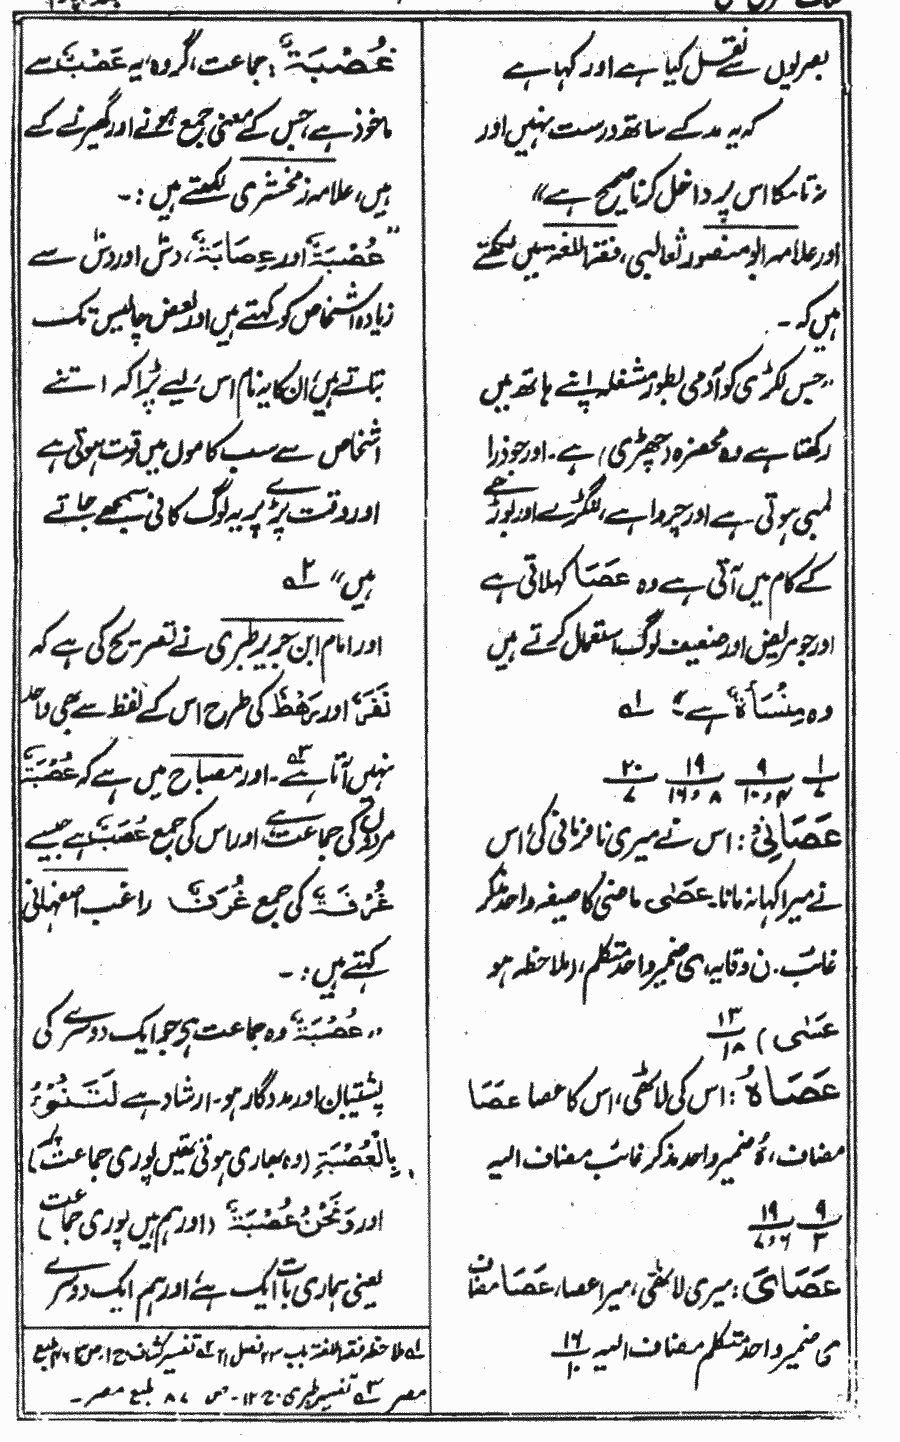 بصریوں سے نقل کیا ہے اور کہا ہے
کہ یہ مد کے ساتھ درست نہیں اور
نہ تا کا اس پر داخل کرنا صحیح ہے"
اور علامہ ابو منصور ثعالبی، فقہ اللغۃ میں لکھتے
ہیں کہ۔
"جس لکڑی کو آدمی بطور مشغلہ اپنے ہاتھ میں
رکھتا ہے وہ مخصرہ (چھڑی) ہے۔ اور جو ذرا
لمبی ہوتی ہے اور چرواہے، لنگڑے اور بوڑھے
کے کام میں آتی ہے وہ عَصَا کہلاتی ہے
اور جو مریض اور ضعیف لوگ استعمال کرتے ہیں
وہ مِنْسَأَۃٌ ہے" ۱؎
۱/۷ ۹/۴ و ۱۰ ۱۹/۸ و ۱۶ ۲۰/۷
عَصَانِیْ: اس نے میری نافرمانی کی، اس
نے میرا کہا نہ مانا۔ عَصٰی ماضی کا صیغہ واحد مذکر
غائب۔ ن وقایہ، ی ضمیر واحد متکلم، (ملاحظہ ہو
عَسٰی) ۱۳/۱۸
عَصَاہُ: اس کی لاٹھی، اس کا عصا عَصَا
مضاف، ہُ ضمیر واحد مذکر غائب مضاف الیہ
۹/۳ ۱۹/۶ و ۷
عَصَایَ: میری لاٹھی، میرا عصا، عَصَا مضاف
ی ضمیر واحد متکلم مضاف الیہ ۱۶/۱۰
عُصْبَۃٌ: جماعت، گروہ، یہ عَصْبٌ سے
ماخوذ ہے، جس کے معنی جمع ہونے اور گھیرنے کے
ہیں، علامہ زمخشری لکھتے ہیں:۔
"عُصْبَۃٌ اور عِصَابَۃٌ، دسؔ اور دسؔ سے
زیادہ اشخاص کو کہتے ہیں اور بعض چالیس تک
بتاتے ہیں، ان کا یہ نام اس لیے پڑا کہ اتنے
اشخاص سے سب کاموں میں قوت ہوتی ہے
اور وقت پڑے پر یہ لوگ کافی سمجھے جاتے
ہیں" ۲؎
اور امام ابن جریر طبری نے تصریح کی ہے کہ
نَفَرٌ اور رَہْطٌ کی طرح اس کے لفظ سے بھی واحد
نہیں آتا ہے ۳؎۔ اور مصباح میں ہے کہ عُصْبَۃٌ
مردوں کی جماعت ہے، اور اس کی جمع عُصَبٌ ہے جیسے
غُرْفَۃٌ کی جمع غُرَفٌ راغب اصفہانی
کہتے ہیں:۔
"عُصْبَۃٌ وہ جماعت ہی جو ایک دوسرے کی
پشتیبان اور مددگار ہو۔ ارشاد ہے لَتَنُوْءُ
بِالْعُصْبَۃِ (وہ بھاری ہوتی تھیں پوری جماعت پر)
اور وَنَحْنُ عُصْبَۃٌ (اور ہم ہیں پوری جماعت)
یعنی ہماری بات ایک ہے، اور ہم ایک دوسرے
۱؎ ملاحظہ فقہ اللغۃ باب ۲۳ فصل ۲۱ ۲؎ تفسیر کشاف ج ۱، ص ۴۶۰ طبع
مصر ۳؎ تفسیر طبری ج ۱۲۔ ص ۸۷ طبع مصر۔